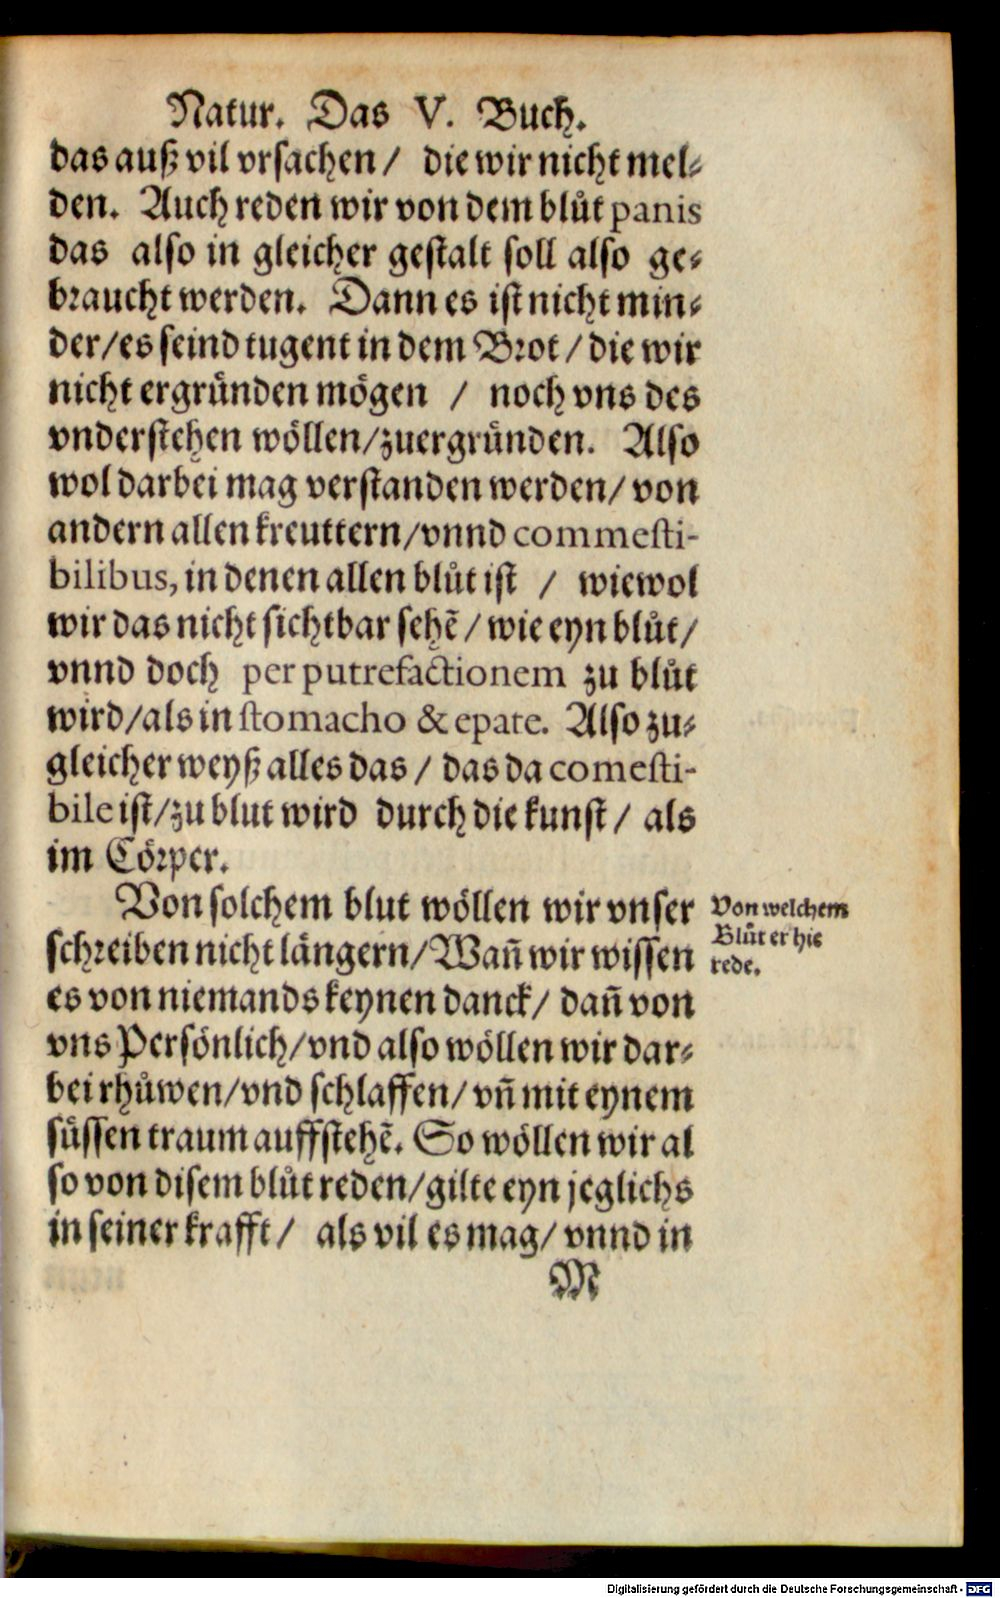 Natur. Das V. Buch.
das auß vil vrsachen / die wir nicht mel⸗
den. Auch reden wir von dem blůt panis
das also in gleicher gestalt soll also ge⸗
braucht werden. Dann es ist nicht min⸗
der/es seind tugent in dem Brot / die wir
nicht ergründen mögen / noch vns des
vnderstehen wöllen/zuergründen. Also
wol darbei mag verstanden werden/ von
andern allen kreuttern/vnnd commesti-
bilibus, in denen allen blůt ist / wiewol
wir das nicht sichtbar sehē / wie eyn blůt/
vnnd doch per putrefactionem zu blůt
wird/als in stomacho & epate. Also zu⸗
gleicher weyß alles das / das da comesti-
bile ist/zu blut wird durch die kunst / als
im Cörper.
Von solchem blut wöllen wir vnser
schreiben nicht längern/Wañ wir wissen
es von niemands keynen danck/ dañ von
vns Persönlich/vnd also wöllen wir dar⸗
bei rhůwen/vnd schlaffen/ vñ mit eynem
süssen traum auffstehē. So wöllen wir al
so von disem blůt reden/gilte eyn jeglichs
in seiner krafft / als vil es mag/ vnnd in
M
Von welchem
Blůt er hie
rede.
Digitalisierung gefördert durch die Deutsche Forschungsgemeinschaft - DFG